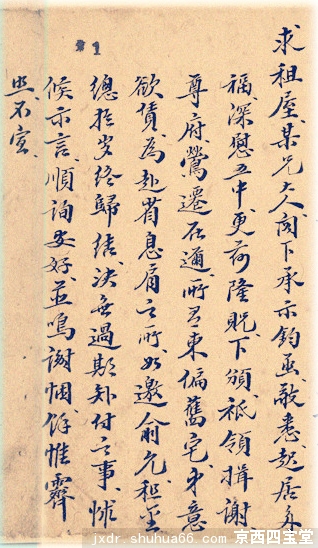 求租屋、某兄大人閣下承示鈞函敬悉起居多
福深慰五中更荷隆貺下頒祗領揖謝
尊府鶯遷在邇所有東偏舊宅弟意
欲賃為赴省息肩之所如邀俞允租金
總於歲終歸結決無過期付之事悚
候示言順詢安好並鳴謝悃餘惟霽
照不宣、
1
jxdr.shuhua66.com 京西四宝堂